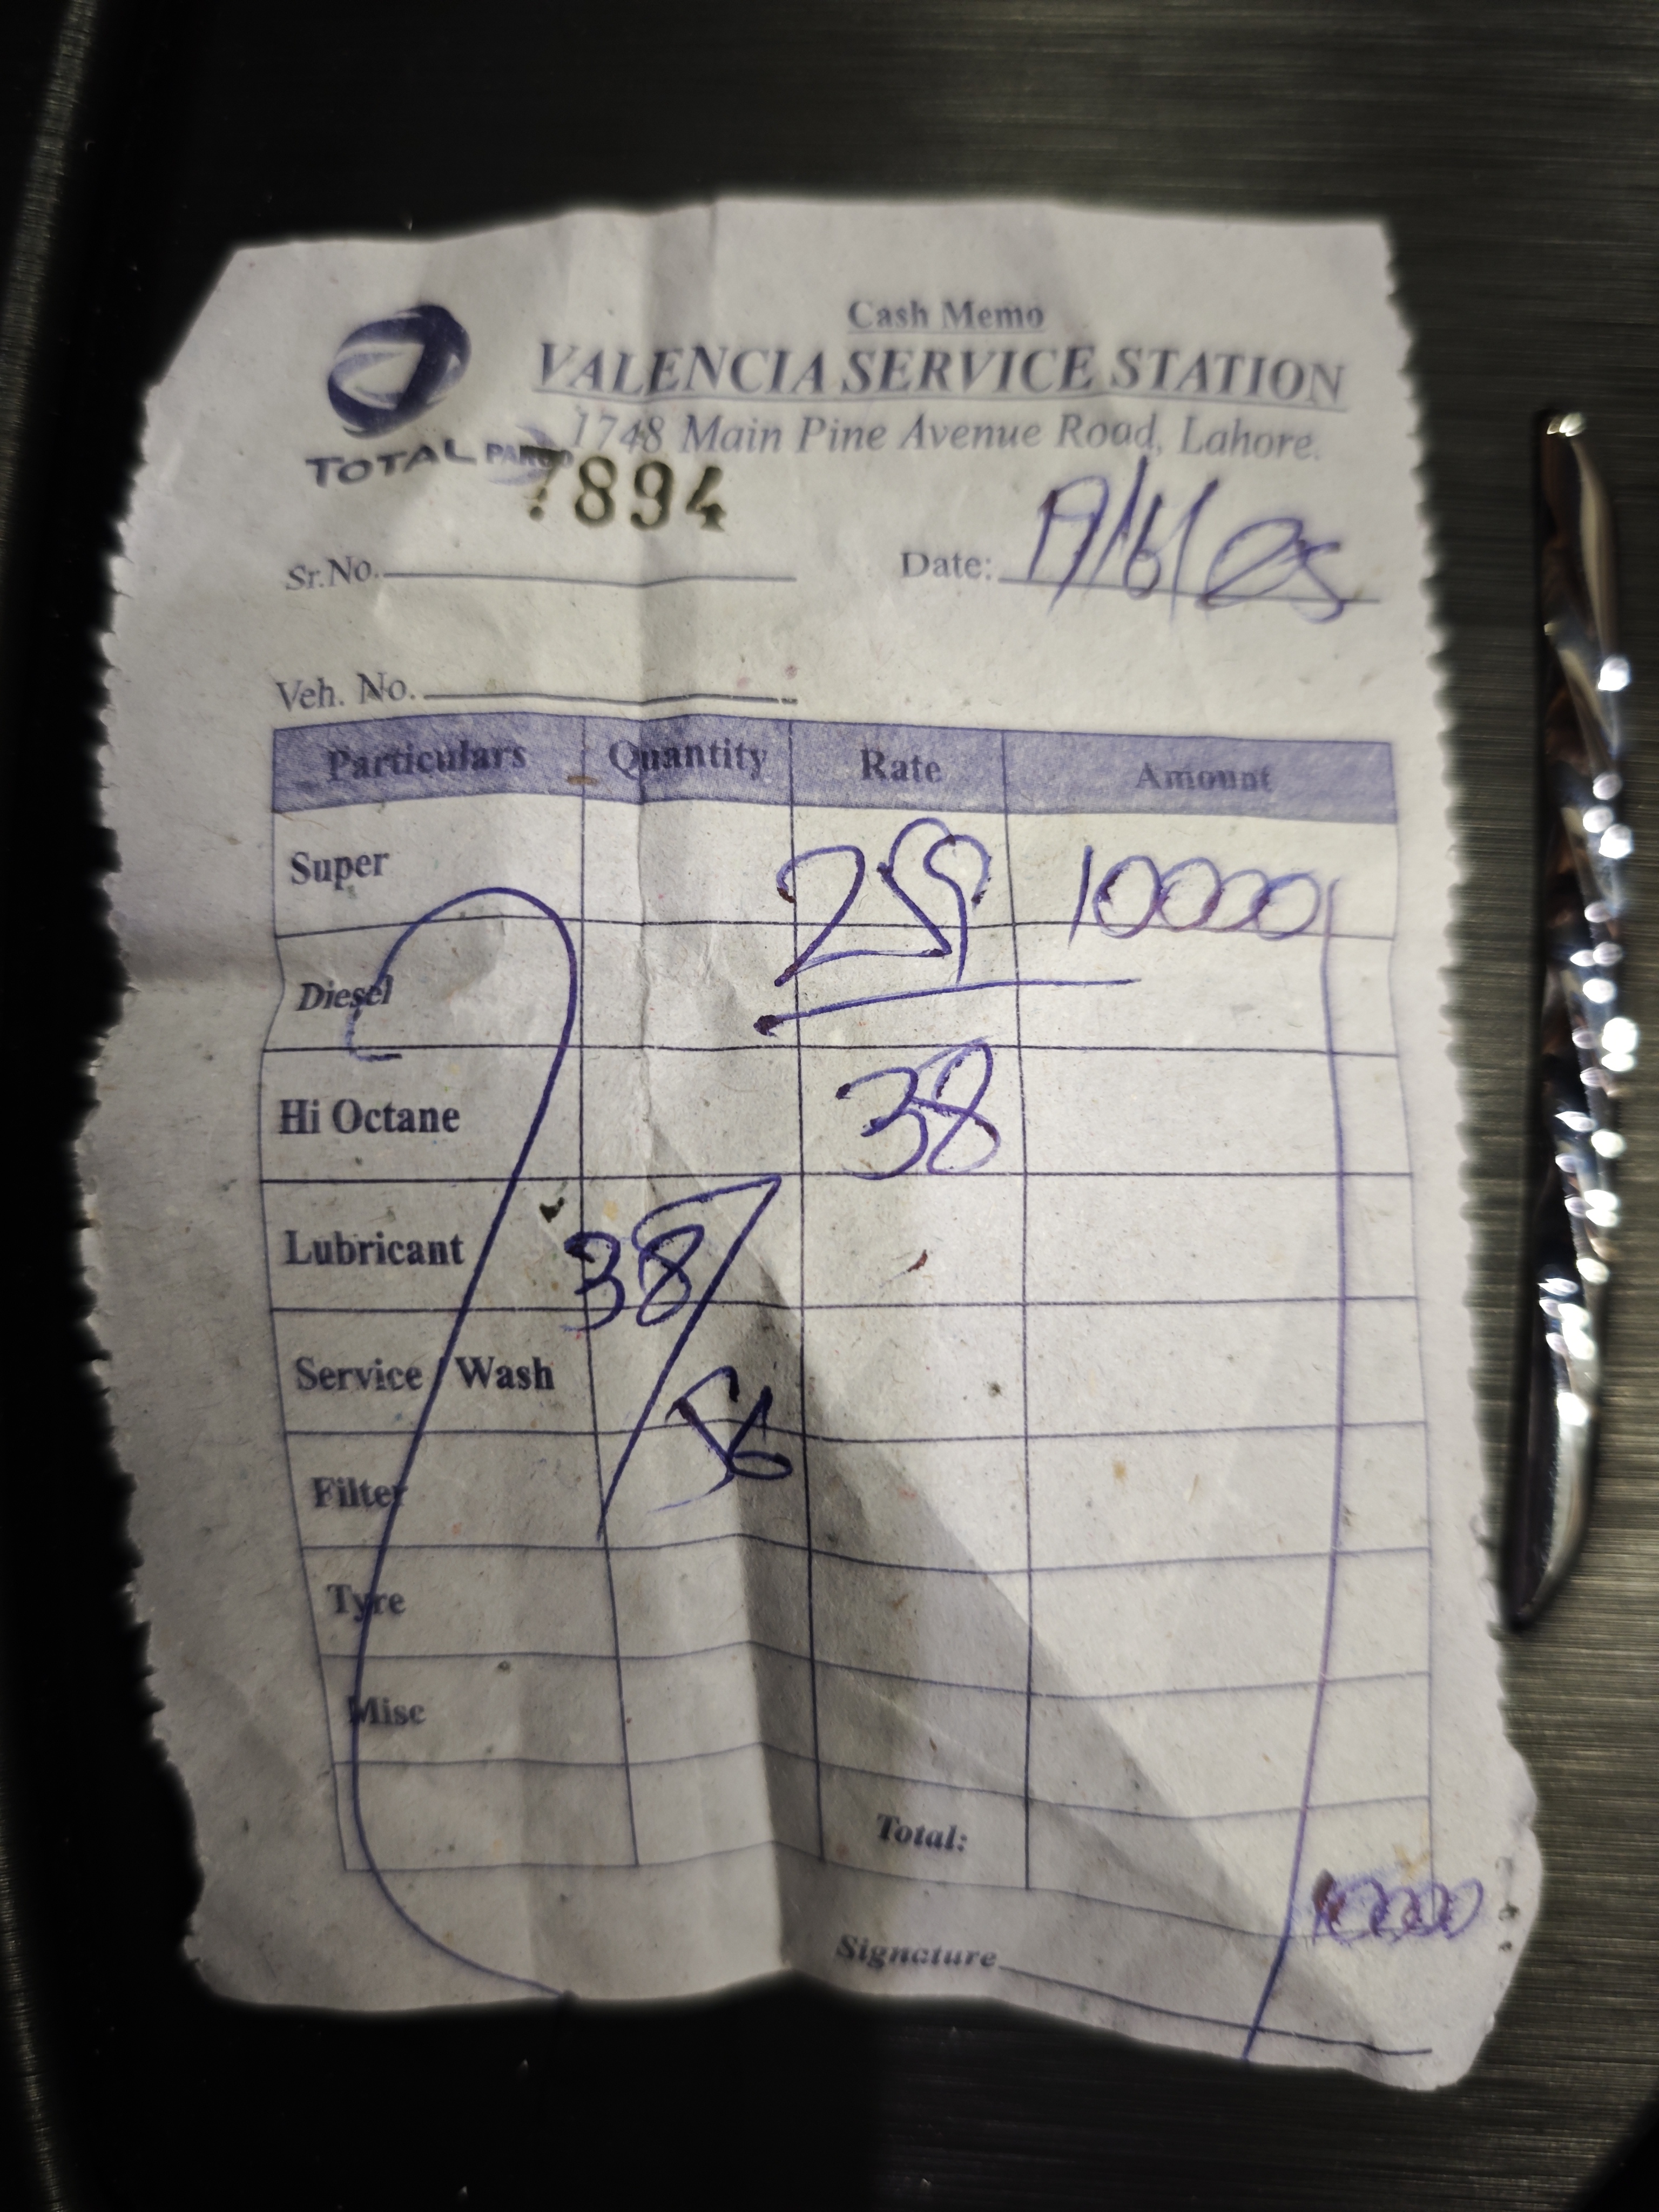 Cash Memo
VALENCIA SERVICE STATION
1748 Main Pine Avenue Road, Lahore.
TOTAL PARCO
7894
Sr.No. Date: 19/6/25
Veh. No.
Particulars Quantity Rate Amount
Super 259 10000
Diesel
Hi Octane 38
Lubricant 38
Service / Wash 56
Filter
Tyre
Misc
Total:
10000
Signature